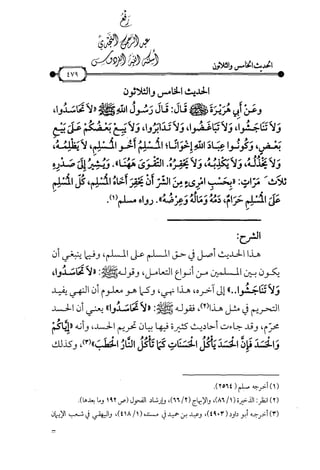 رفع
عبد الرحمن النجدي
أسكنه الله الفردوس
الحديث الخامس والثلاثون
٤٧٩
الحديث الخامس والثلاثون
وعَنْ أَبِي هُرَيْرَةَ ﷺ قَالَ: قَالَ رَسُولُ اللهِ ﷺ: «لَا تَحَاسَدُوا،
وَلَا تَنَاجَشُوا، وَلَا تَبَاغَضُوا، وَلَا تَدَابَرُوا، وَلَا يَبِعْ بَعْضُكُمْ عَلَى بَيْعِ
بَعْضٍ، وَكُونُوا عِبَادَ اللهِ إِخْوَانًا، المُسْلِمُ أَخُو المُسْلِمِ، لَا يَظْلِمُهُ،
وَلَا يَخْذُلُهُ، وَلَا يَكْذِبُهُ، وَلَا يَحْقِرُهُ. التَّقْوَى هَهُنَا». وَيُشِيرُ إِلَى صَدْرِهِ
ثلاثَ مَرَاتٍ: «بِحَسْبِ امْرِىءٍ مِنَ الشَّرِّ أَنْ يَحْقِرَ أَخَاهُ المُسْلِمَ، كُلُّ المُسْلِمِ
عَلَى المُسْلِمِ حَرَامٌ، دَمُهُ وَمَالُهُ وَعِرْضُهُ». رواه مسلم(١).
الشرح:
هذا الحديث أصل في حق المسلم على المسلم، وفيما ينبغي أن
يكون بين المسلمين من أنواع التعامل، وقوله ﷺ: «لَا تَحَاسَدُوا،
وَلَا تَنَاجَشُوا..» إلى آخره، هذا نهي، وكما هو معلوم أن النهي يفيد
التحريم في مثل هذا(٢)، فقوله ﷺ: «لَا تَحَاسَدُوا» يعني أن الحسد
محرّم، وقد جاءت أحاديث كثيرة فيها بيان تحريم الحسد، وأنه «إِيَّاكُمْ
وَالْحَسَدَ فَإِنَّ الْحَسَدَ يَأْكُلُ الْحَسَنَاتِ كَمَا تَأْكُلُ النَّارُ الْحَطَبَ»(٣)، وكذلك
(١) أخرجه مسلم (٢٥٦٤).
(٢) انظر: الذخيرة (١/ ٨٦)، والإبهاج (٢/ ٦٦)، وإرشاد الفحول (ص ١٩٢ وما بعدها).
(٣) أخرجه أبو داود (٤٩٠٣)، وعبد بن حميد في مسنده (١/ ٤١٨)، والبيهقي في شعب الإيمان
=